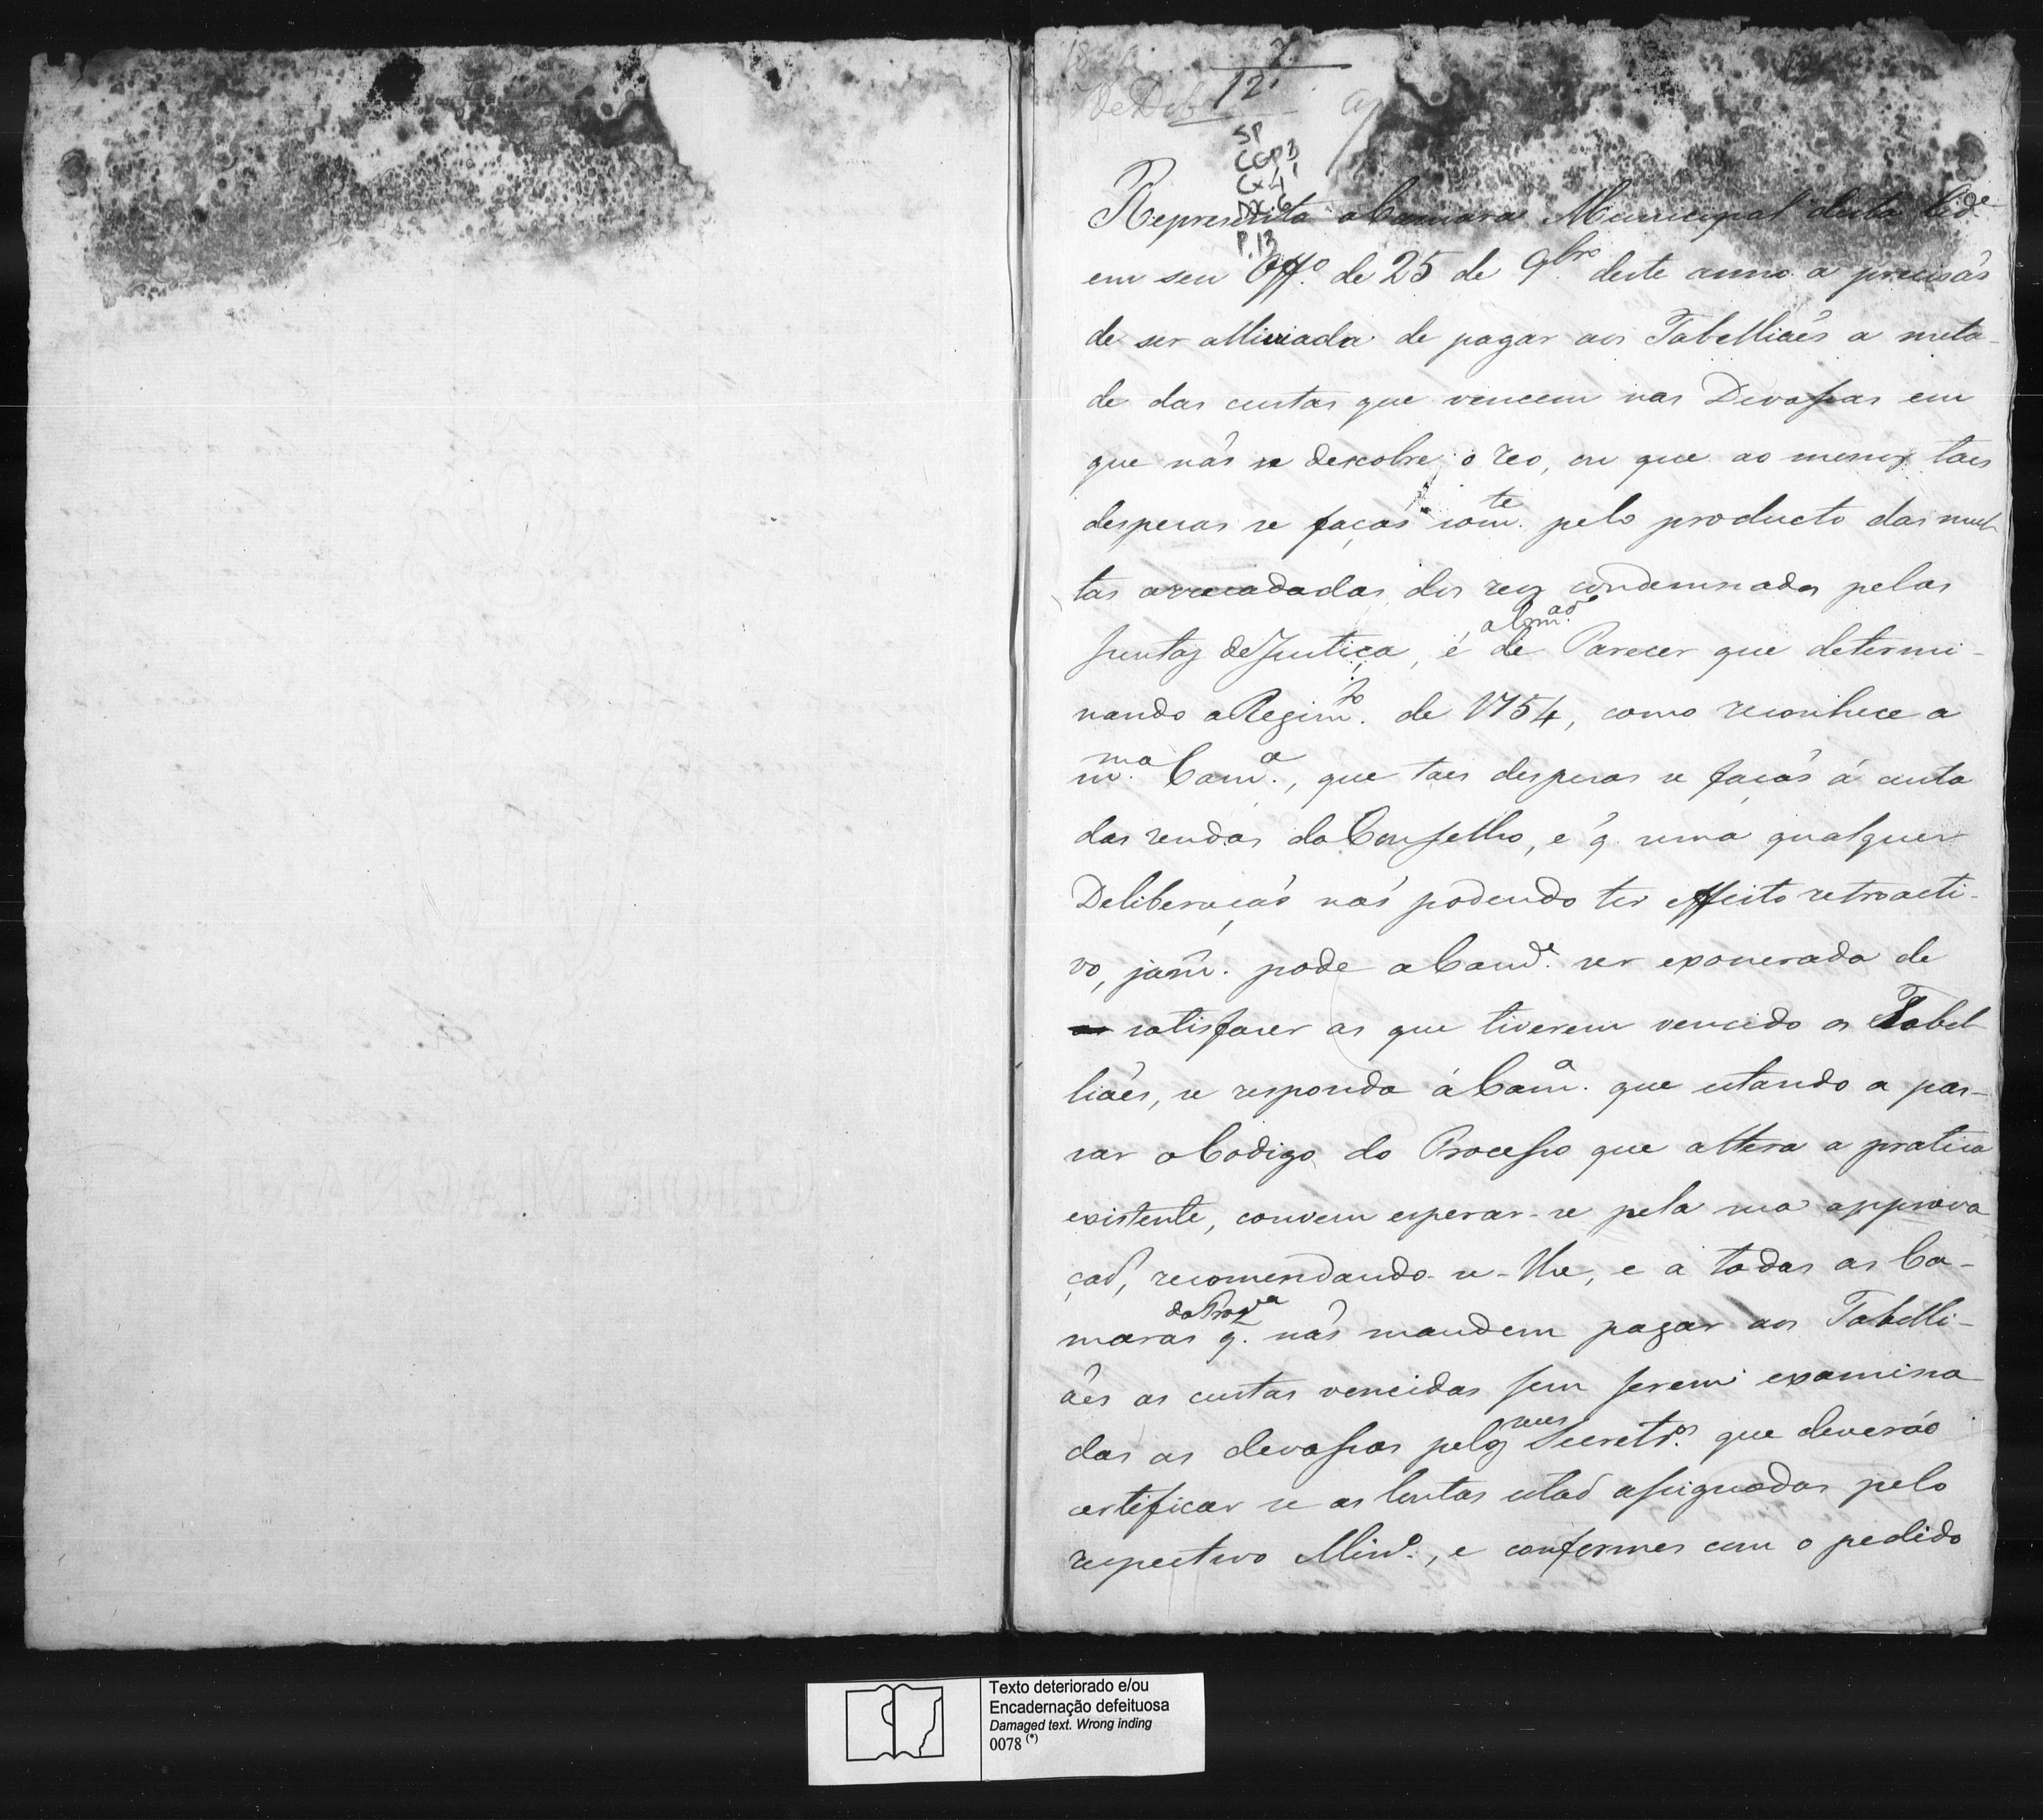 7
12
De Deb
SP
CGP3
Cx4
P.13
Representa a Camara Municipal desta Cid.e
em seu Off.o de 25 de 9bro deste anno a precisaõ
de ser alliviada de pagar aos Tabelliaẽs a meta-
de das custas que vencem nas Devassas em
que naõ se descobre o reo, ou que ao menos taes
despezas se façaõ som.te pelo producto das mul-
tas arrecadadas dos reos condemnados pelas
Juntas de Justiça, é a Com.ão de Parecer que determi-
nando o Regim.to de 1754, como reconhece a
m.ma Cam.a, que taes despezas se façaõ á custa
das rendas do Conselho, e q. uma qualquer
Deliberaçaõ naõ podendo ter effeito retroacti-
vo, jam. pode a Cam.a ser exonerada de
satisfazer as que tiverem vencido os Tabel-
liaẽs, se responda á Cam.a que estando a pas-
sar o Codigo do Processo que altera a pratica
existente, convem esperar-se pela sua approva
çaõ, recomendando-se-lhe, e a todas as Ca-
maras da Prov.a q. naõ mandem pagar aos Tabelli-
aẽs as custas vencidas sem serem examina
das as devassas pelos seus Secret.os que deveráõ
certificar se as Contas estaõ assignadas pelo
respectivo Min.o, e conformes com o pedido
Texto deteriorado e/ou
Encadernação defeituosa
Damaged text. Wrong inding
0078 (*)